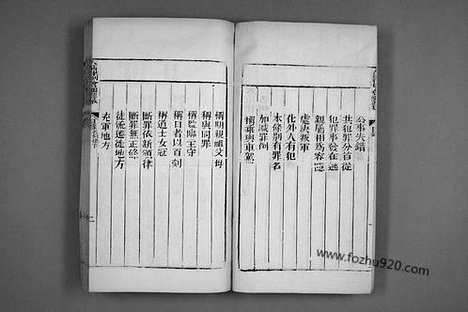 公事失錯
共犯罪分首從
犯罪事發在逃
親屬相為容隱
處決叛軍
化外人有犯
本條別有罪名
加減罪例
稱乘輿車駕
稱期親祖父母
稱與同罪
稱監臨主守
稱日者以百刻
稱道士女冠
斷罪依新頒律
斷罪無正條
徒流遷徙地方
充軍地方
www.fozhu920.com